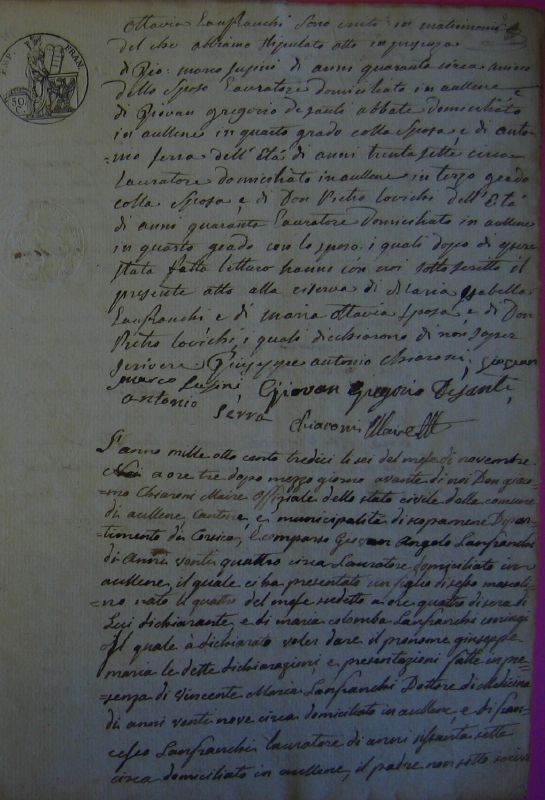 EMP. FRAN.
50
C.
Ottavia Lanfranchi sono uniti in matrimonio
del che abbiamo stipulato atto in presenza
di Gio: marco susini di anni quaranta circa amico
dello sposo Lauratore domiciliato in aullene e
di Giovan gregorio desanti abbate domiciliato
in aullene in quarto grado colla sposa e di anto-
=nio serra dell'Età di anni trenta sette circa
Lauratore domiciliato in aullene in terzo grado
colla sposa e di Don Pietro lovichi dell'Età
di anni quaranta Lauratore domiciliato in aullene
in quarto grado con lo sposo i quali dopo di essere
stata fatta lettura hanno con noi sotto scritto il
presente atto alla riserva di Maria Isabella
Lanfranchi e di maria ottavia sposa e di Don
Pietro lovichi, i quali dichiarono di non saper
scrivere Giuseppe antonio chiaroni. giovan
marco susini Giovan Gregorio Desanti,
antonio serra
chiaroni Maire
L'anno mille otto cento tredici li sei del mese di novembre
a ore tre dopo mezzo giorno avante di noi Don giaco-
=mo Chiaroni Maire offiziale dello stato civile della comune
di aullene Cantone, e municipalità di scopamene Dipar-
timento di Corsica, è comparso Giovan Angelo Lanfranchi
di Anni venti quattro circa Lauratore domiciliato in
aullene, il quale ci ha presentato un figlio di sesso mascoli-
=no nato li quattro del mese sudetto a ore quattro di sera di
Lui dichiarante, e di maria colomba Lanfranchi coniugi
il quale à dichiarato voler dare il prenome giuseppe
maria le dette dichiarazioni, e presentazioni fatte in pre-
=senza di vincente Maria Lanfranchi Dottore di Medicina
di anni venti nove circa domiciliato in aullene, e di fran-
cesco Lanfranchi lauratore di anni sessanta sette
circa domiciliato in aullene, il padre non sotto scrisse